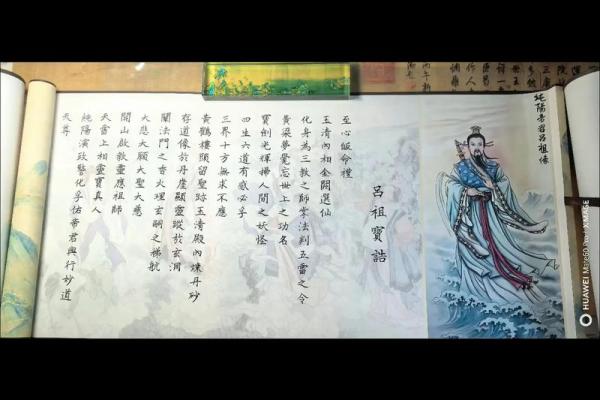 純陽帝君呂祖像
呂祖寶誥
至心皈命禮
玉清內相金闕選仙
化身為三教之師掌法判五雷之令
黃粱夢覺忘世上之功名
寶劍光輝掃人間之妖怪
四生六道有感必孚
三界十方無求不應
黃鶴樓頭留聖跡玉清殿內煉丹砂
存道像於丹崖顯靈蹤於玄洞
闡法門之香火理玄嗣之梯航
大悲大願大聖大慈
開山啟教靈應祖師
天雷上相靈寶真人
純陽演政警化孚佑帝君興行妙道
天尊
HUAWEI Mate60 Pro+ XMAGE